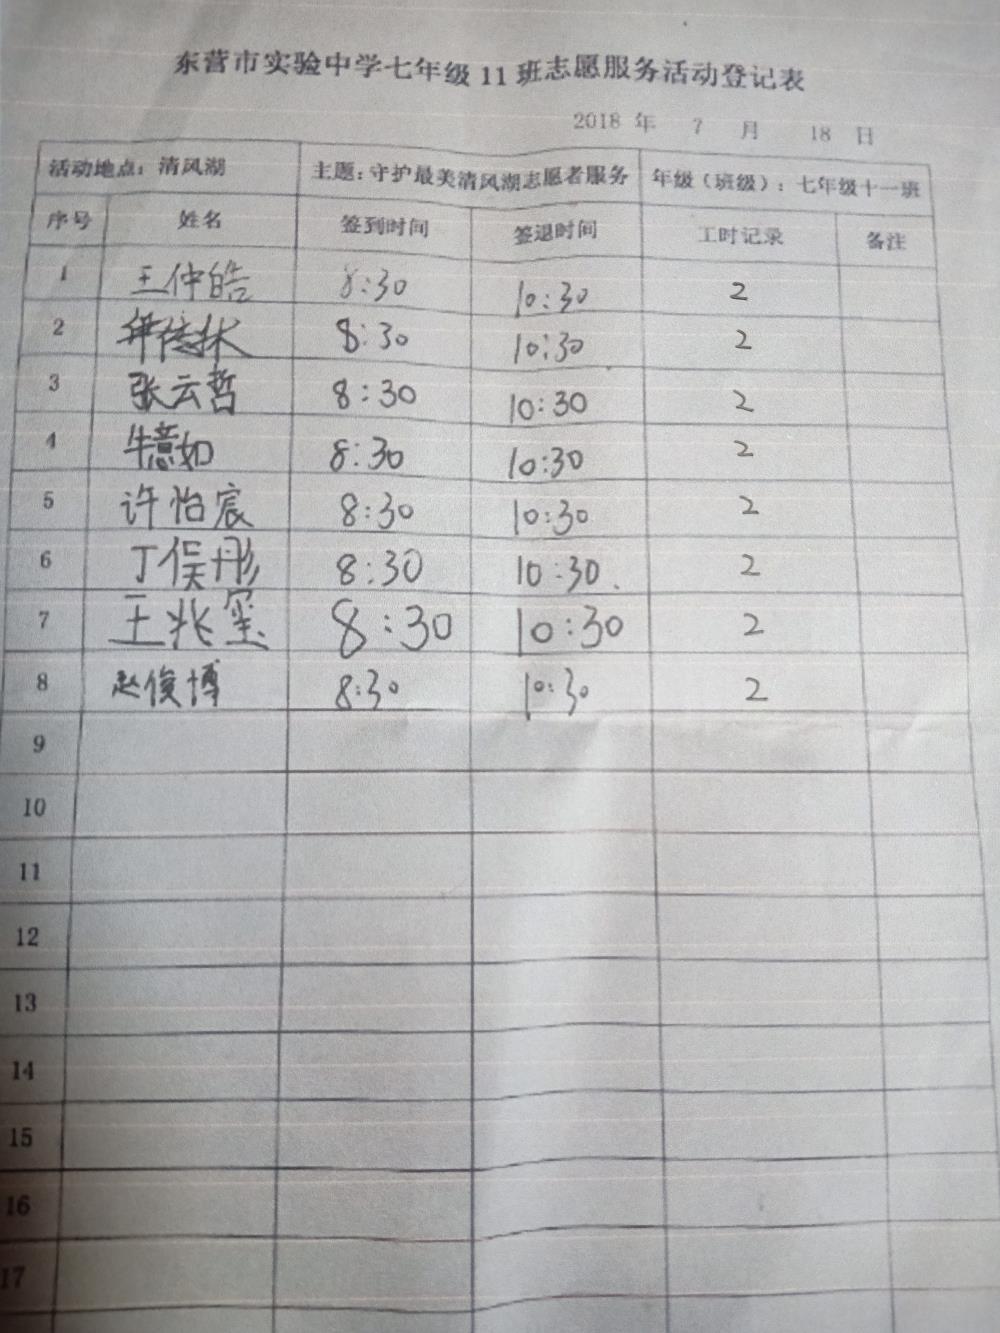 东营市实验中学七年级 11 班志愿服务活动登记表
2018 年 7 月 18 日
活动地点：清风湖 主题：守护最美清风湖志愿者服务 年级（班级）：七年级十一班
序号 姓名 签到时间 签退时间 工时记录 备注
1 王仲皓 8:30 10:30 2
2 8:30 10:30 2
3 张云哲 8:30 10:30 2
4 牛意如 8:30 10:30 2
5 许怡宸 8:30 10:30 2
6 丁俣彤 8:30 10:30 2
7 王兆玺 8:30 10:30 2
8 赵俊博 8:30 10:30 2
9
10
11
12
13
14
15
16
17